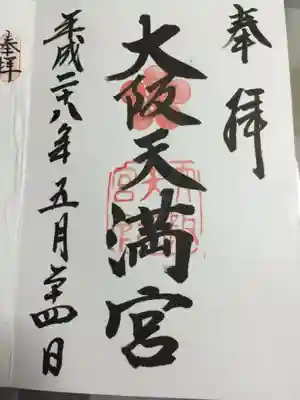 奉拝
大阪天満宮
平成二十八年五月二十四日
奉拝